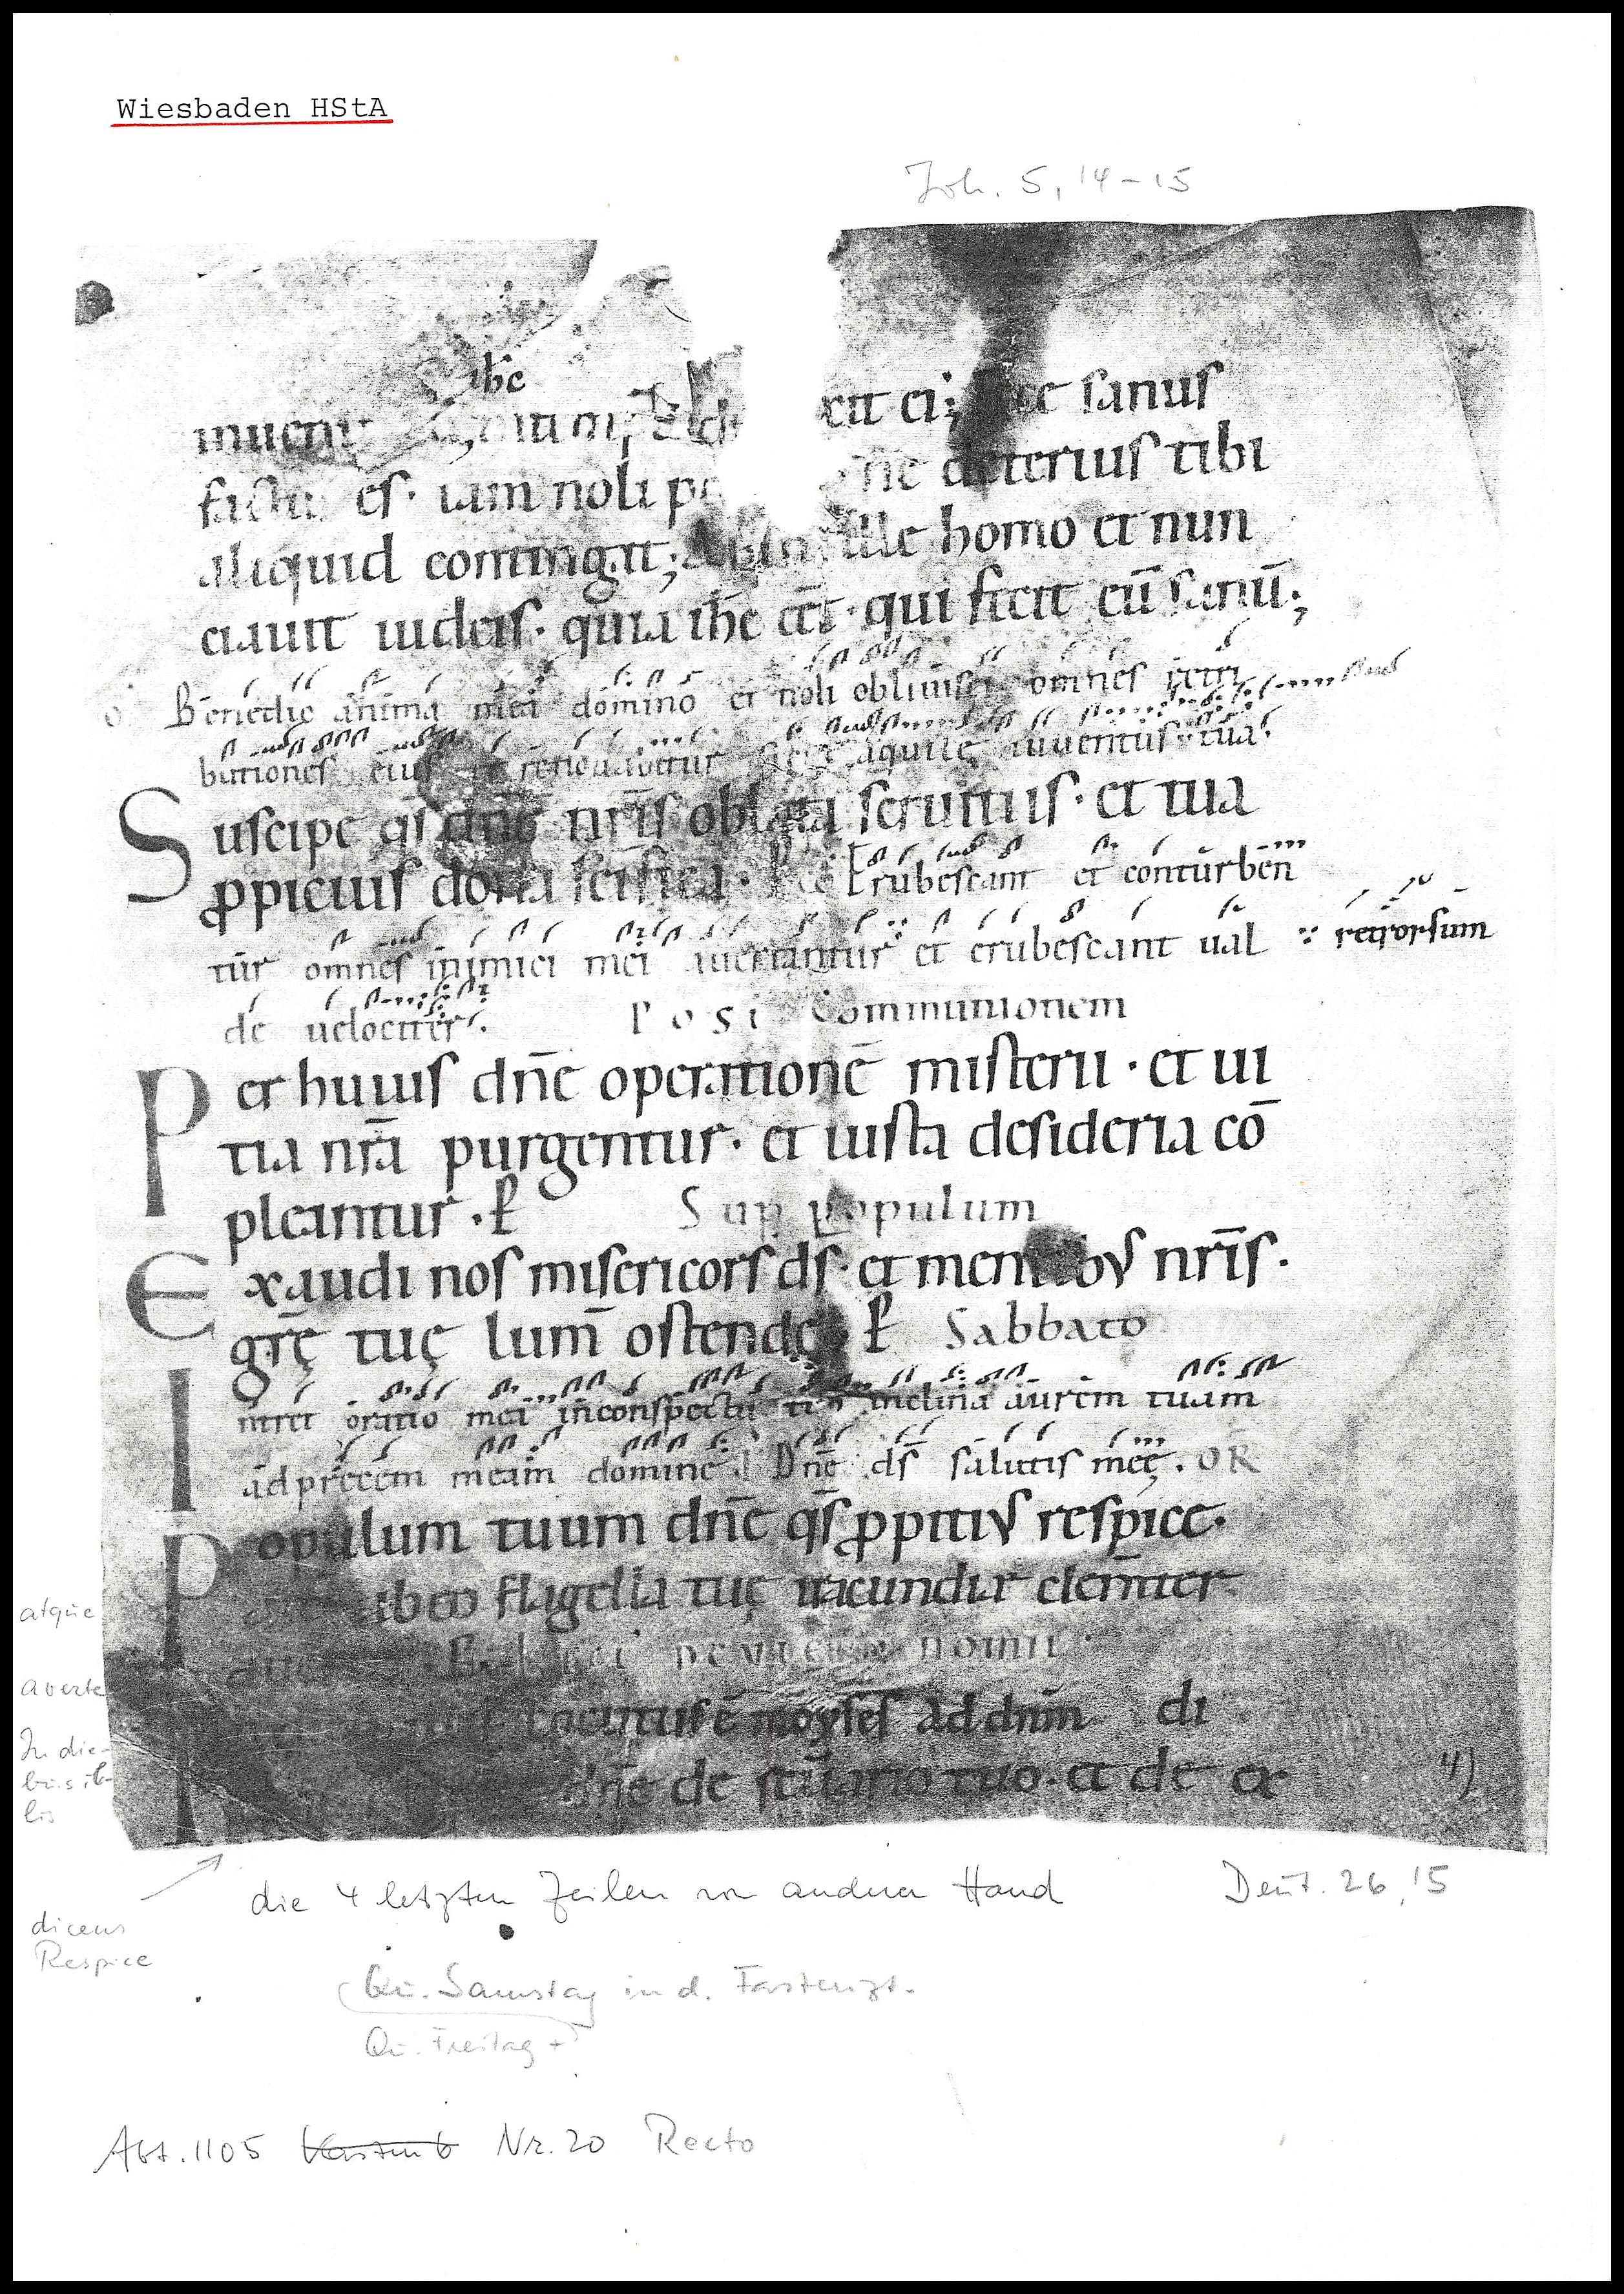 Wiesbaden HStA
Joh. 5, 14-15
ihc
inuenit xit ei; sanus
es. iam noli deterius tibi
aliquid contingat; ille homo et nun
ciauit iudeis. quia ihc e̅e̅t. qui fecit eu̅ sanu̅;
Benedic anima mea domino et noli obliuisci omnes retri
butiones eius et renouabitur sicut aquile iuuentus tua.
Suscipe qs̅ dne̅ nr̅is oblata seruitiis. et tua
ꝓpicius dona sc̅ifica. Erubescant et conturben
tur omnes inimici mei auertantur et erubescant ual retrorsum
de uelociter. Post Communionem
Per huius dn̅e operatione̅ misterii. et ui
tia nr̅a purgentur. et iusta desideria co̅
pleantur. P̲ Sup populum
Exaudi nos misericors ds̅. et mentibus nr̅is.
gr̅ę tuę lum̅ ostende P̲ Sabbato
Intret oratio mea in conspectu tuo inclina aurem tuam
ad precem meam domine Dn̅e ds̅ salutis meę. OR
Populum tuum dn̅e qs̅ ꝓpitius respice.
atque ab eo flagella tuę iracundię clem̅ter
averte
In die-
bus il-
lis
locutus e̅ moyses ad dnm̅ di
dn̅e de sc̅uario tuo. et de ex 4)
die 4 letzten Zeilen von anderer Hand Deut. 26,15
dicens
Respice
Qu. Samstag in d. Fastenzt.
Qu. Freitag +
Abt. 1105 Kasten 6 Nr. 20 Recto